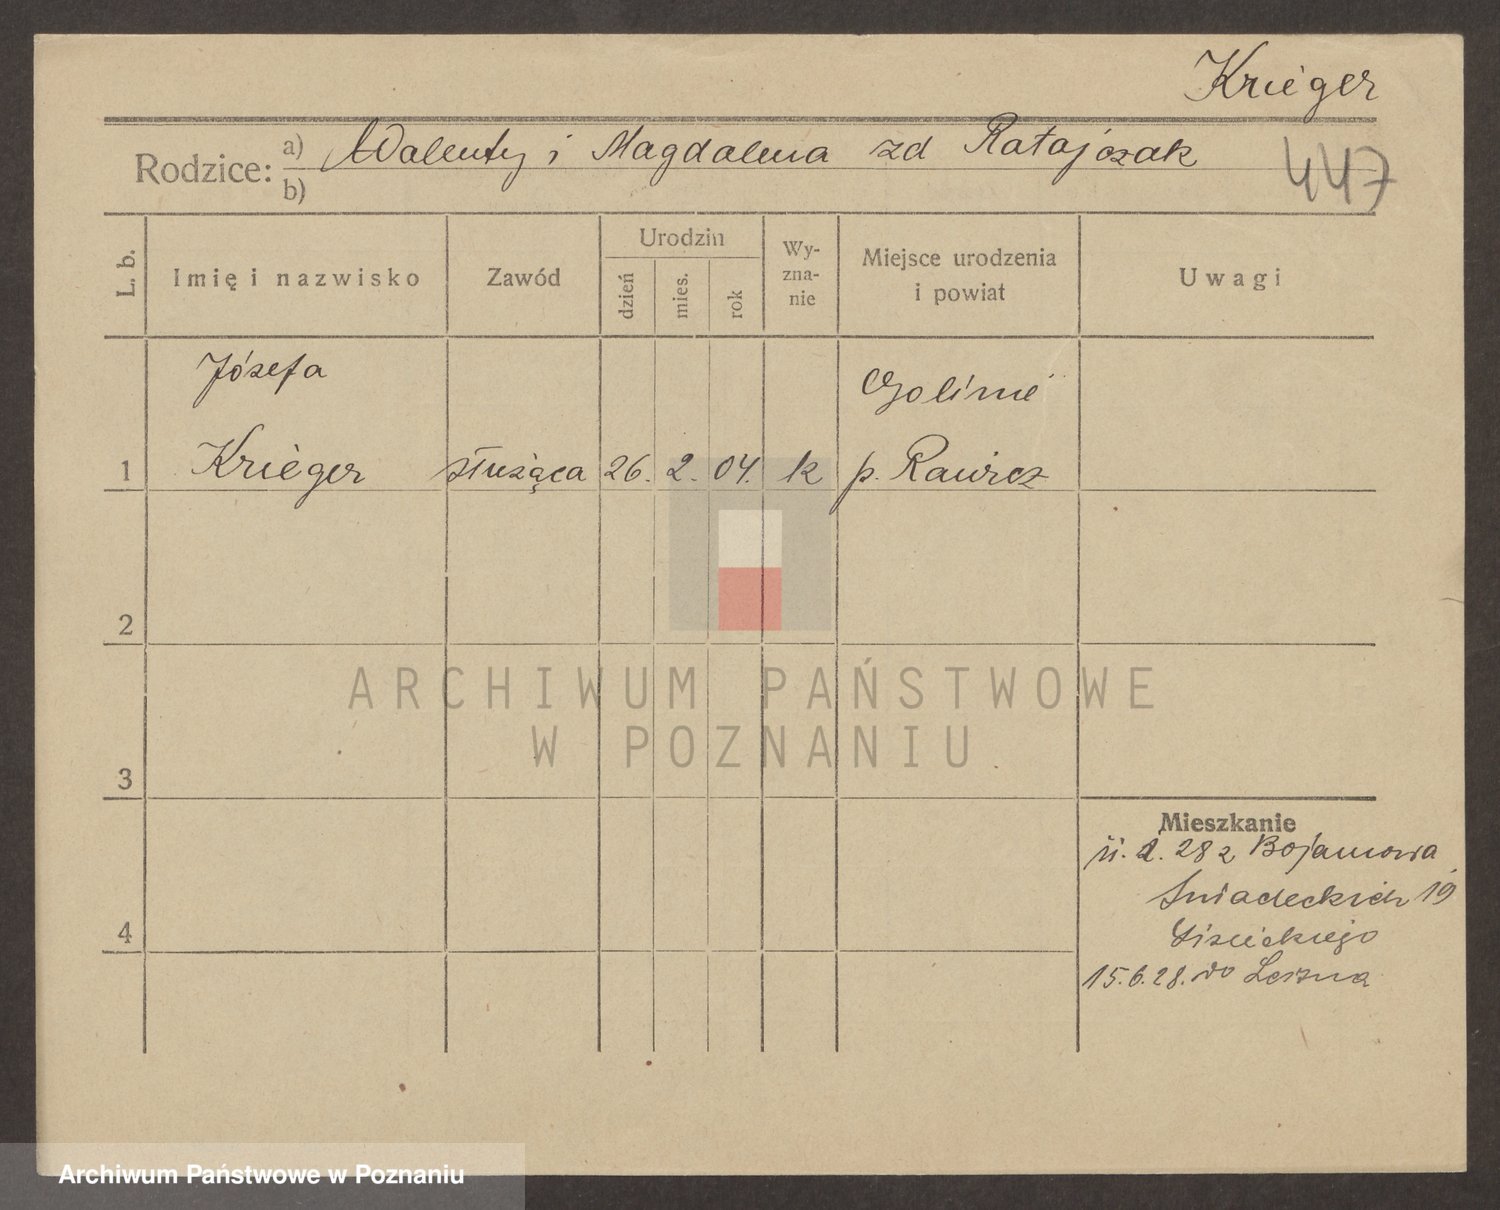 Krieger
Rodzice: a) Walenty i Magdalena zd Ratajczak
b)
447
L. b.
Imię i nazwisko
Zawód
Urodzin
dzień
mies.
rok
Wy-
zna-
nie
Miejsce urodzenia
i powiat
Uwagi
Józefa
Golinie
1 Krieger służąca 26. 2. 04. k p. Rawicz
2
3
4
Mieszkanie
2. 28 z Bojanowa
Śniadeckich 19
15.6.28. do Leszna
ARCHIWUM PAŃSTWOWE
W POZNANIU
Archiwum Państwowe w Poznaniu